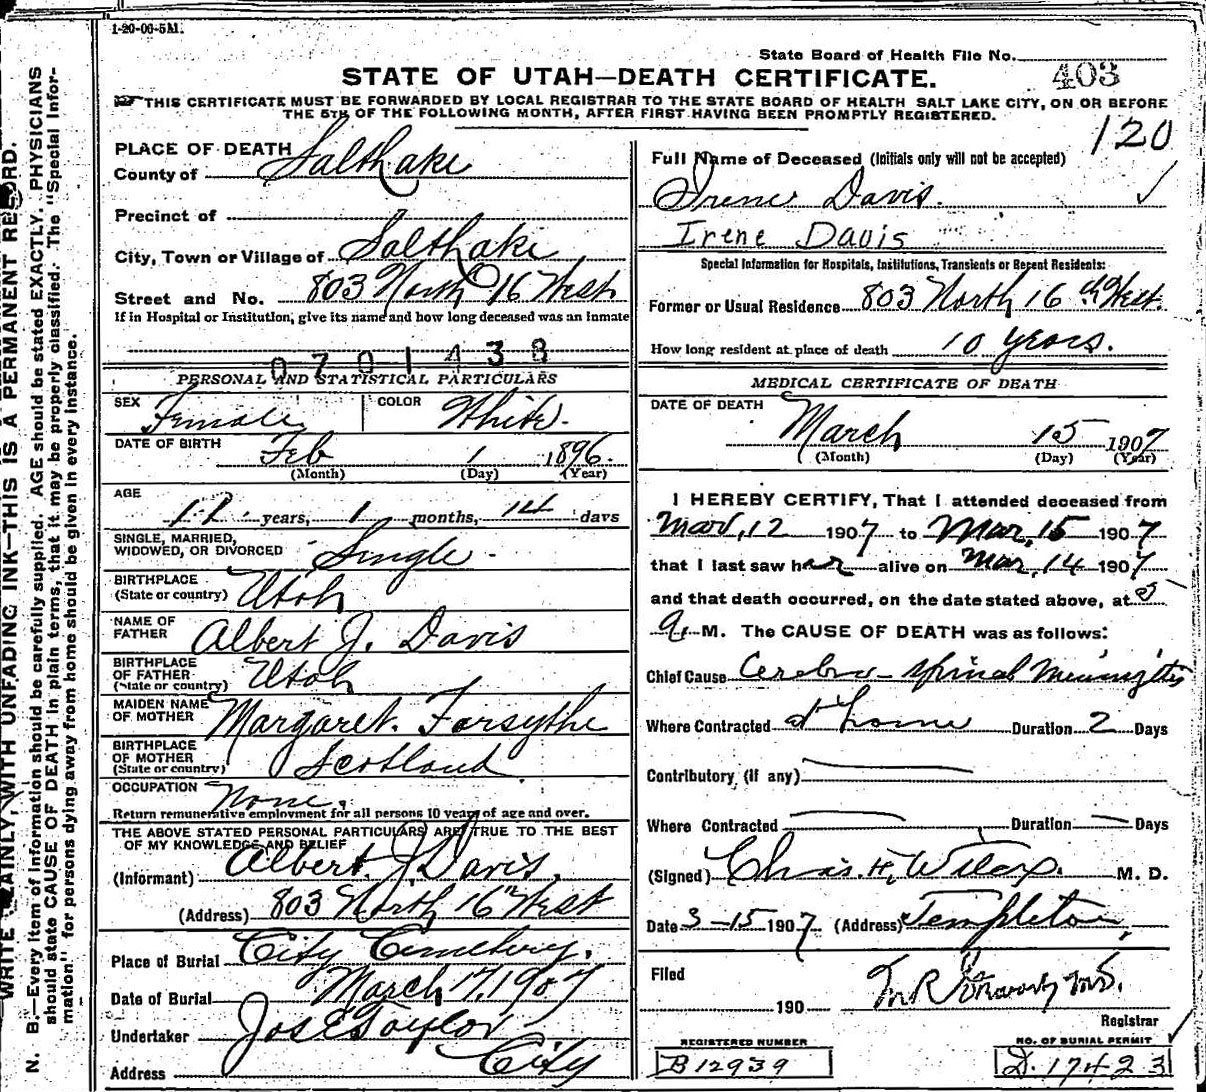 1-20-06-5M.
State Board of Health File No. 403
STATE OF UTAH—DEATH CERTIFICATE.
☞ THIS CERTIFICATE MUST BE FORWARDED BY LOCAL REGISTRAR TO THE STATE BOARD OF HEALTH SALT LAKE CITY, ON OR BEFORE
THE 5TH OF THE FOLLOWING MONTH, AFTER FIRST HAVING BEEN PROMPTLY REGISTERED.
120
PLACE OF DEATH
County of Salt Lake
Precinct of
City, Town or Village of Salt Lake
Street and No. 803 North 16 West
If in Hospital or Institution, give its name and how long deceased was an inmate
0701438
PERSONAL AND STATISTICAL PARTICULARS
SEX Female COLOR White.
DATE OF BIRTH Feb 1 1896.
(Month) (Day) (Year)
AGE
years, 1 months, 14 days
SINGLE, MARRIED,
WIDOWED, OR DIVORCED Single
BIRTHPLACE
(State or country) Utah
NAME OF
FATHER Albert J. Davis
BIRTHPLACE
OF FATHER
(State or country) Utah
MAIDEN NAME
OF MOTHER Margaret Forsythe
BIRTHPLACE
OF MOTHER
(State or country) Scotland
OCCUPATION None.
Return remunerative employment for all persons 10 years of age and over.
THE ABOVE STATED PERSONAL PARTICULARS ARE TRUE TO THE BEST
OF MY KNOWLEDGE AND BELIEF
(Informant) Albert J. Davis.
(Address) 803 North 16th West
Place of Burial City Cemetery.
Date of Burial March 17, 1907
Undertaker Jos E Taylor
Address City
Full Name of Deceased (Initials only will not be accepted)
Irene Davis. ✓
Irene Davis
Special Information for Hospitals, Institutions, Transients or Recent Residents:
Former or Usual Residence 803 North 16th West.
How long resident at place of death 10 years.
MEDICAL CERTIFICATE OF DEATH
DATE OF DEATH
March 15 1907
(Month) (Day) (Year)
I HEREBY CERTIFY, That I attended deceased from
Mar, 12 1907 to Mar, 15 1907
that I last saw her alive on Mar, 14 1907
and that death occurred, on the date stated above, at 5
a. M. The CAUSE OF DEATH was as follows:
Chief Cause Cerebro-spinal Meningitis
Where Contracted at home Duration 2 Days
Contributory (if any)
Where Contracted Duration Days
(Signed) Chas. H. Wilcox. M. D.
Date 3-15 1907 (Address) Templeton
Filed
190 M.D.
Registrar
REGISTERED NUMBER
B12939
NO. OF BURIAL PERMIT
D. 17423
WRITE PLAINLY, WITH UNFADING INK—THIS IS A PERMANENT RECORD.
N. B.—Every item of information should be carefully supplied. AGE should be stated EXACTLY. PHYSICIANS
should state CAUSE OF DEATH in plain terms, that it may be properly classified. The "Special Infor-
mation" for persons dying away from home should be given in every instance.